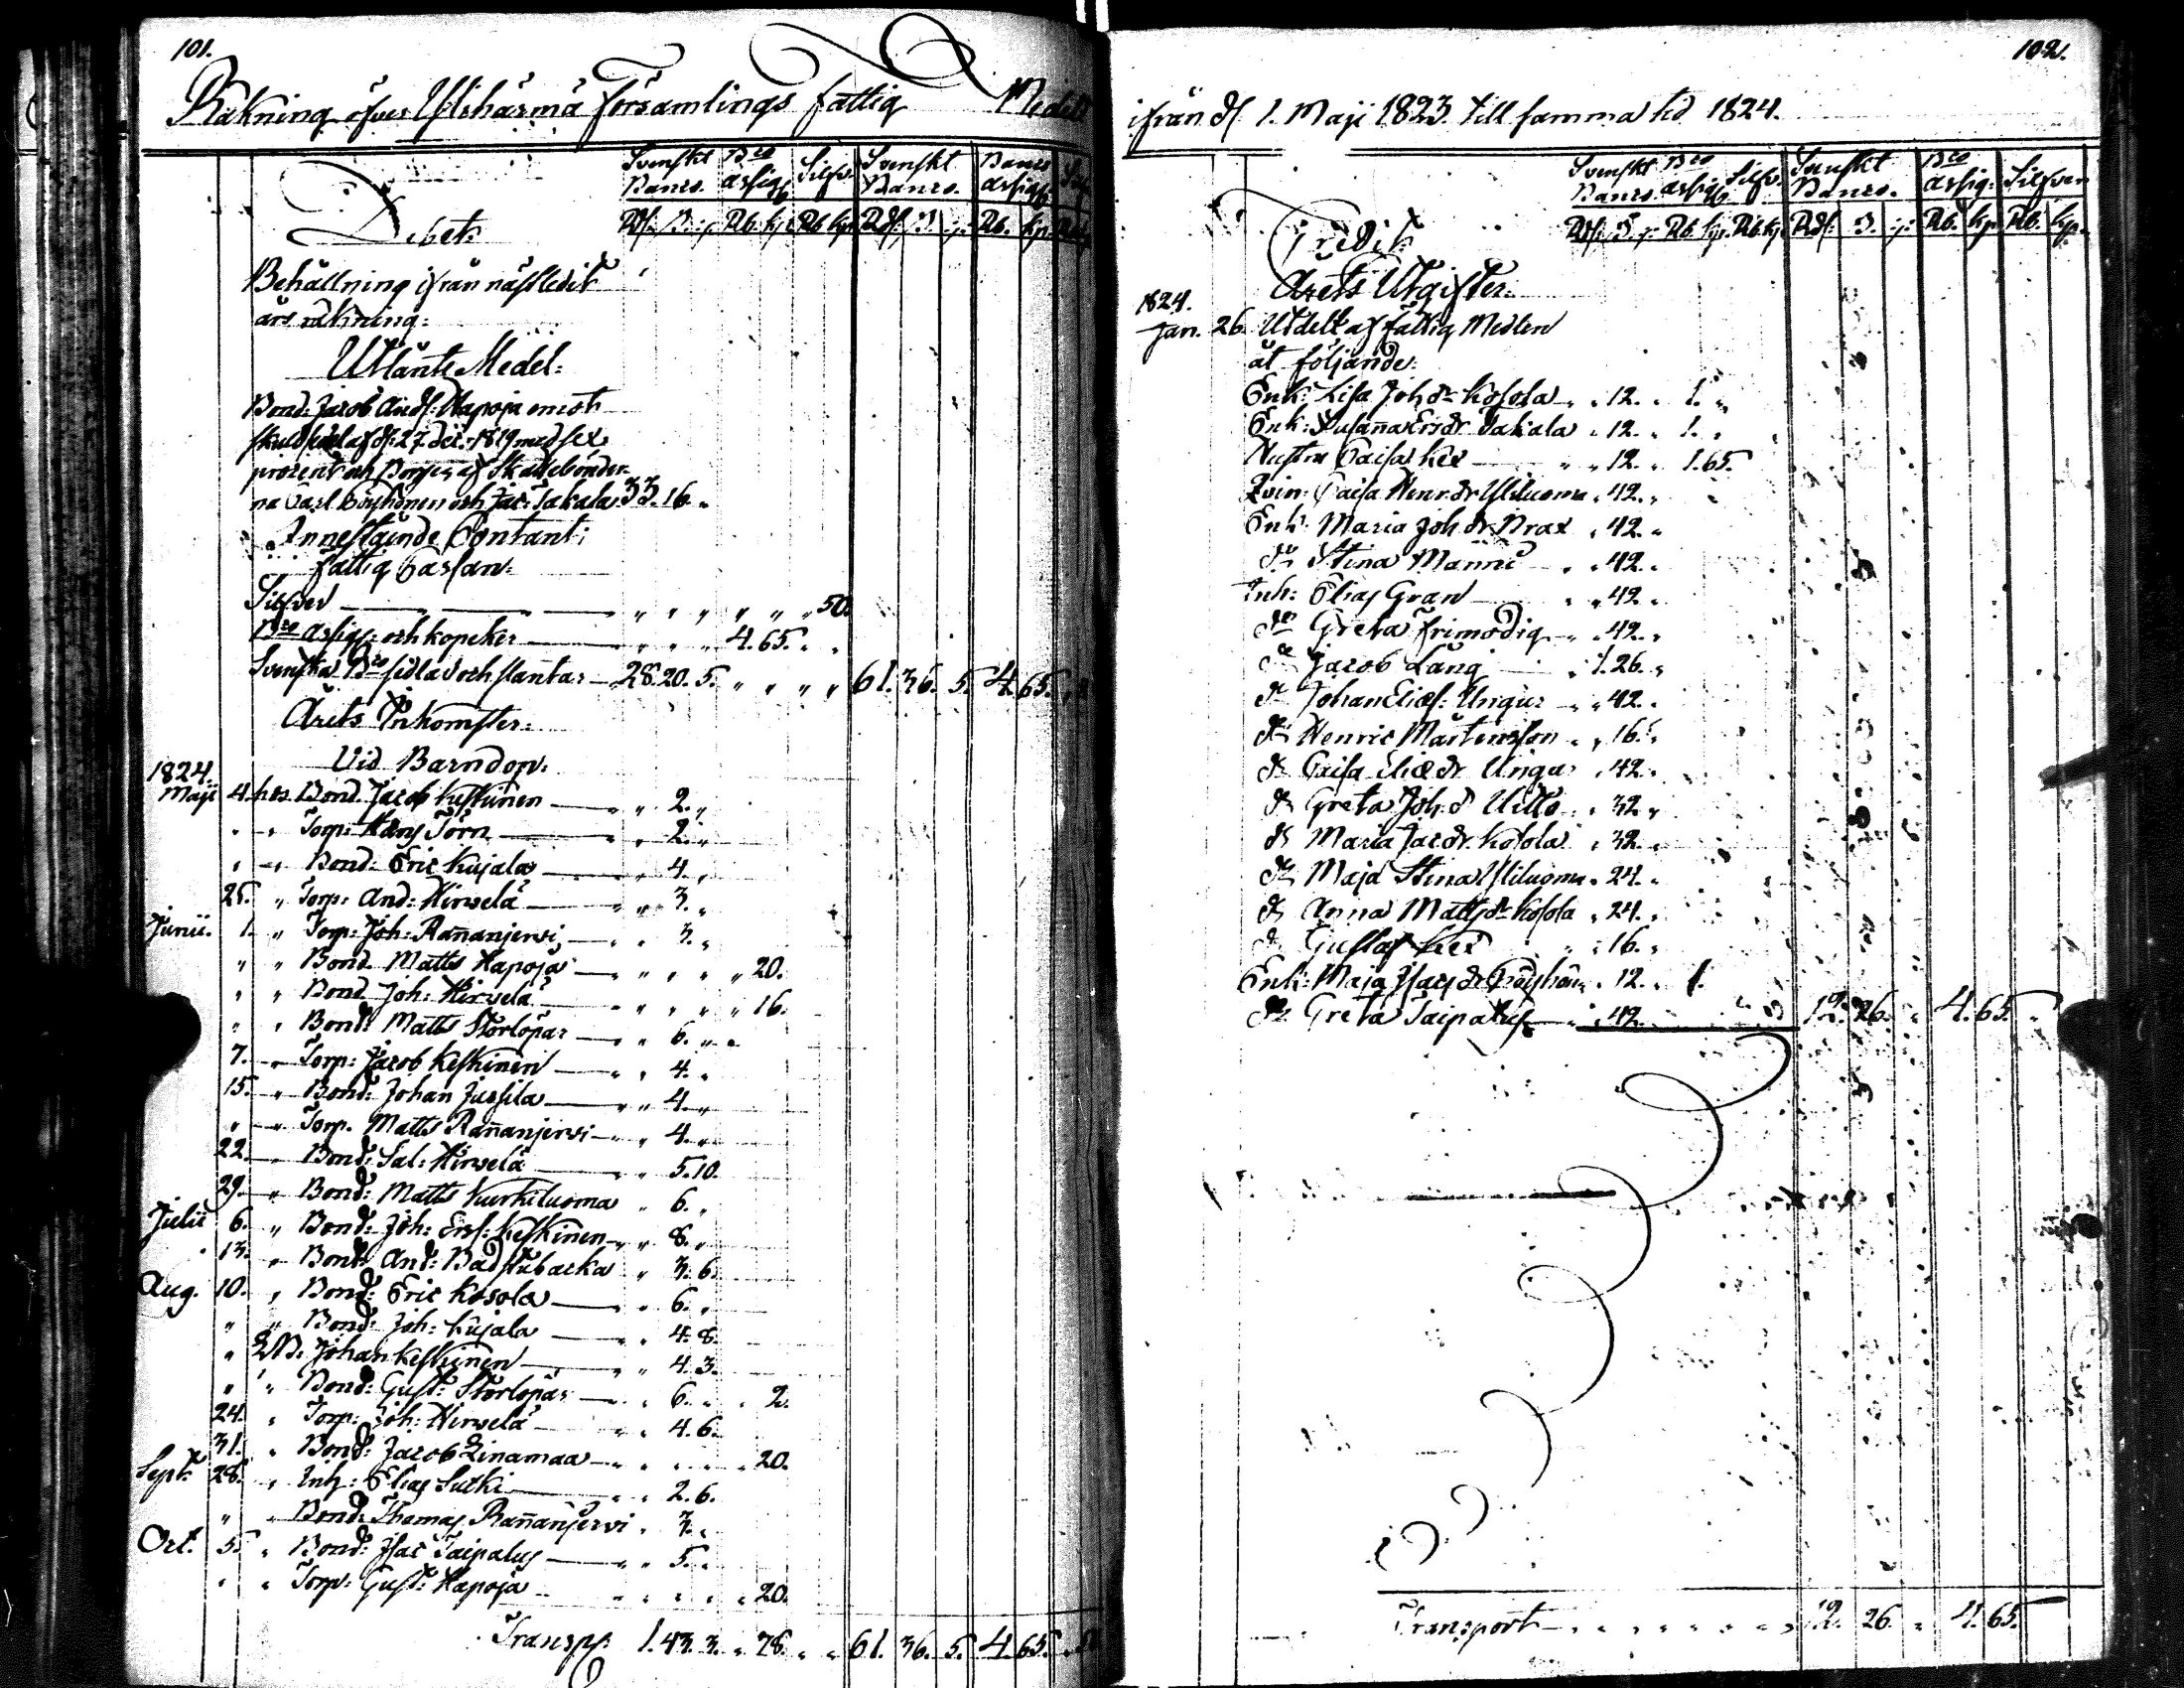 101.
Räkning öfver Ylihärmä Församlings Fattig Medel
Svenskt Banco. Bco assign. Silfv. Svenskt Banco. Banco assign. Silf.
Debet:
Rdr. ß. r. Rb. kp. Rb. kp. Rdr. ß. r. Rb. kp.
Behållning ifrån nästledit
års räkning:
Utlånte Medel:
Bond: Jacob Andr: Hapoja emot
skuldsedel af d: 27 Dec: 1819 med sex
procent och Borgen af Skattebönder
na Carl Böyhönen och Jac: Takala 33. 16. "
Innestående Contant i
fattig Cassan:
Silfver " " " " " " 50.
Bco assign: och kopeker " " " 4. 65. " "
Svenska Bco sedlar och slantar 28. 20. 5. " " " " 61. 36. 5. 4. 65. "
Årets Inkomster:
Vid Barndop:
1824.
Maji 4. hos Bond. Jacob Keskinen " 2. "
" " Torp: Hans Törn " 2. "
" " Bond: Eric Kujala " 4. "
25. " Torp: And: Hirvelä " 3. "
Junii. 1. " Torp: Joh: Rannanjervi " 3. "
" " Bond Matts Hapoja " " " " " 20.
" " Bond Joh: Hirvelä " " " " " 16.
" " Bond: Matts Storlopar " 6. " "
7. " Torp: Jacob Keskinen " 4. "
15. " Bond: Johan Jussila " 4. "
" " Torp. Matts Rannanjervi " 4. "
22. " Bond: Sal: Hirvelä " 5. 10.
29. " Bond: Matts Kuerkiluoma " 6. "
Julii 6. " Bond: Joh: Ersf: Keskinen " 8. "
13. " Bond: And: Badstubacka " 3. 6.
Aug. 10. " Bond: Eric Kosola " 6. "
" " Bond: Joh: Kujala " 4. 8.
" Johan Keskinen " 4. 3.
" " Bond: Gust: Storlopar " 6. " " 2.
24. " Torp: Joh: Hirvelä " 4. 6.
31. " Bond: Jacob Linamaa " " " " " 20.
Sept. 28. " Inh: Elias Sutki " 2. 6.
" " Bond: Thomas Rannanjervi " 3. "
Oct. 5. " Bond: Isac Taipalus " 5. "
" " Torp: Gust: Hapoja " " " " " 20.
Transp: 1. 43. 3. " 78. " " 61. 36. 5. 4. 65. "
102.
ifrån d. 1. Maji 1823. till samma tid 1824.
Svenskt Banco. Bco assign. Silfv. Svenskt Banco. Bco assig: Silfver
Credit
Rdr. ß. r. Rb. kp. Rb. kp. Rdr: ß. r. Rb. kp. Rb. kp.
Årets Utgifter:
1824.
Jan. 26. Utdelt af fattig Medlen
åt följande:
Enk: Lisa Joh dr Kosola " 12. " 1. "
Enk: Susanna Ersdr Takala " 12. " 1. "
Hustru Caisa Kex " " 12. " 1. 65.
Qvin: Caisa Henr: dr Yliluoma " 42. "
Enk: Maria Joh dr Brax " 42. "
do Stina Männi " 42. "
Inh: Elias Gran " 42. "
do Greta Frimodig " 42. "
do Jacob Lång 1. 26. "
do Johan Eliæs: Ungur " 42. "
do Henric Mårtensson " 16. "
do Caisa Eliædr Ungar " 42. "
do Greta Joh: dr Uitto " 32. "
do Maria Jac dr. Kosola " 32. "
do Maja Stina Yliluoma " 24. "
do Anna Matts dr Kosola " 24. "
do Gustaf Kex " 16. "
Enk: Maja Isacs dr " 12. " 1.
do Greta Taipalus " 42. 12. 26. " 4. 65. "
Transport 12. 26. " 4. 65.